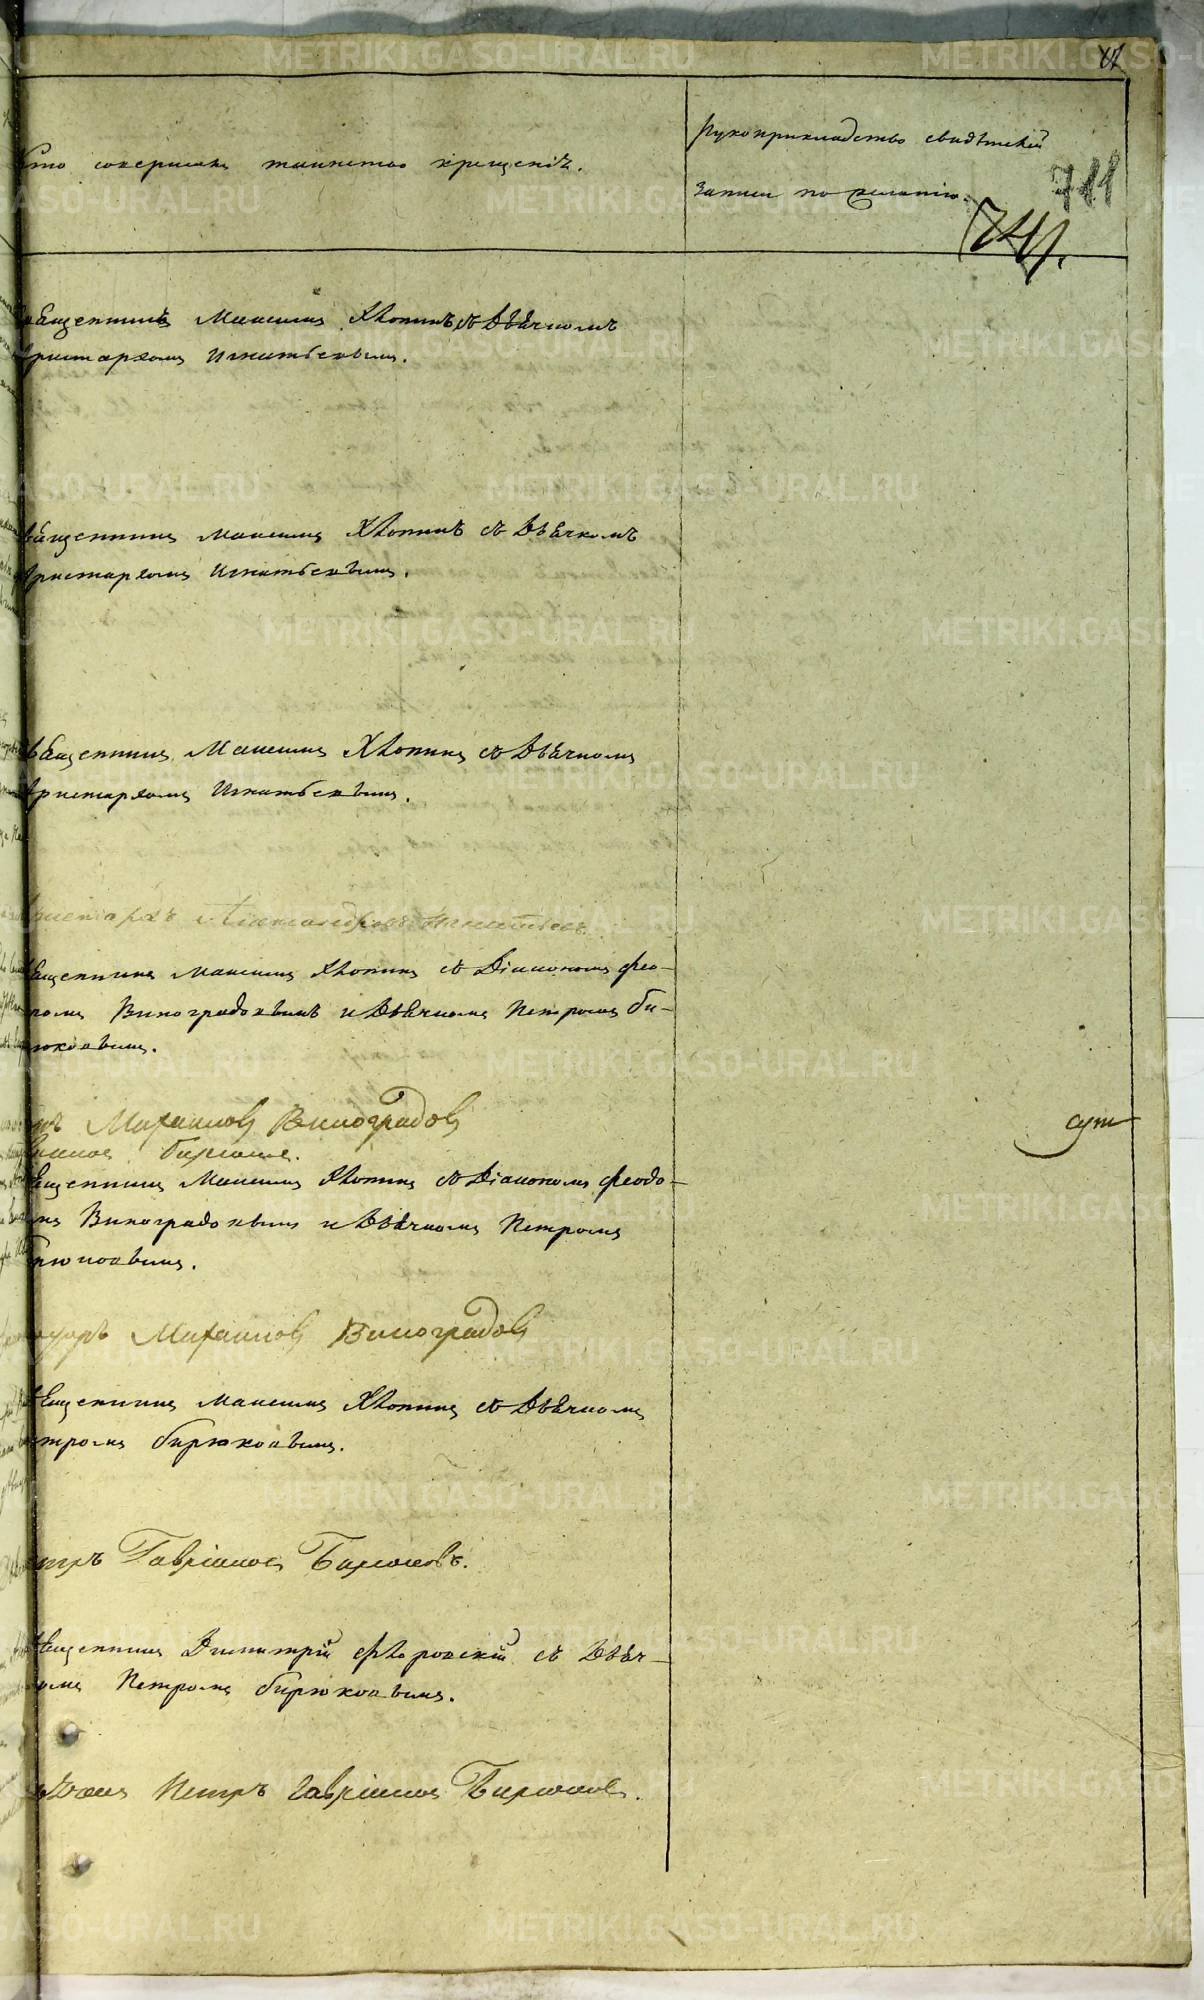 17
Кто совершалъ таинство крещенія.
Рукоприкладство свидѣтелей
записи по желанію.
711
741.
Священникъ Максимъ Хлопинъ съ Дьячкомъ
Аристархомъ Игнатьевымъ.
Священникъ Максимъ Хлопинъ съ Дьячкомъ
Аристархомъ Игнатьевымъ.
Священникъ Максимъ Хлопинъ съ Дьячкомъ
Аристархомъ Игнатьевымъ.
Аристархъ Александровъ Игнатьевъ.
Священникъ Максимъ Хлопинъ съ Діакономъ Фео-
ромъ Виноградовымъ и Дьячкомъ Петромъ Би-
рюковымъ.
Михаиловъ Виноградовъ
Бирюков.
Священникъ Максимъ Хлопинъ съ Діакономъ Феодо-
ромъ Виноградовымъ и Дьячкомъ Петромъ
Бирюковымъ.
Михаиловъ Виноградовъ
Священникъ Максимъ Хлопинъ съ Дьячкомъ
Петромъ Бирюковымъ.
Петръ Гавріиловъ Бирюковъ.
Священникъ Димитрій Флоровскій съ Дьяч-
комъ Петромъ Бирюковымъ.
Петръ Гавріиловъ Бирюковъ.
METRIKI.GASO-URAL.RU